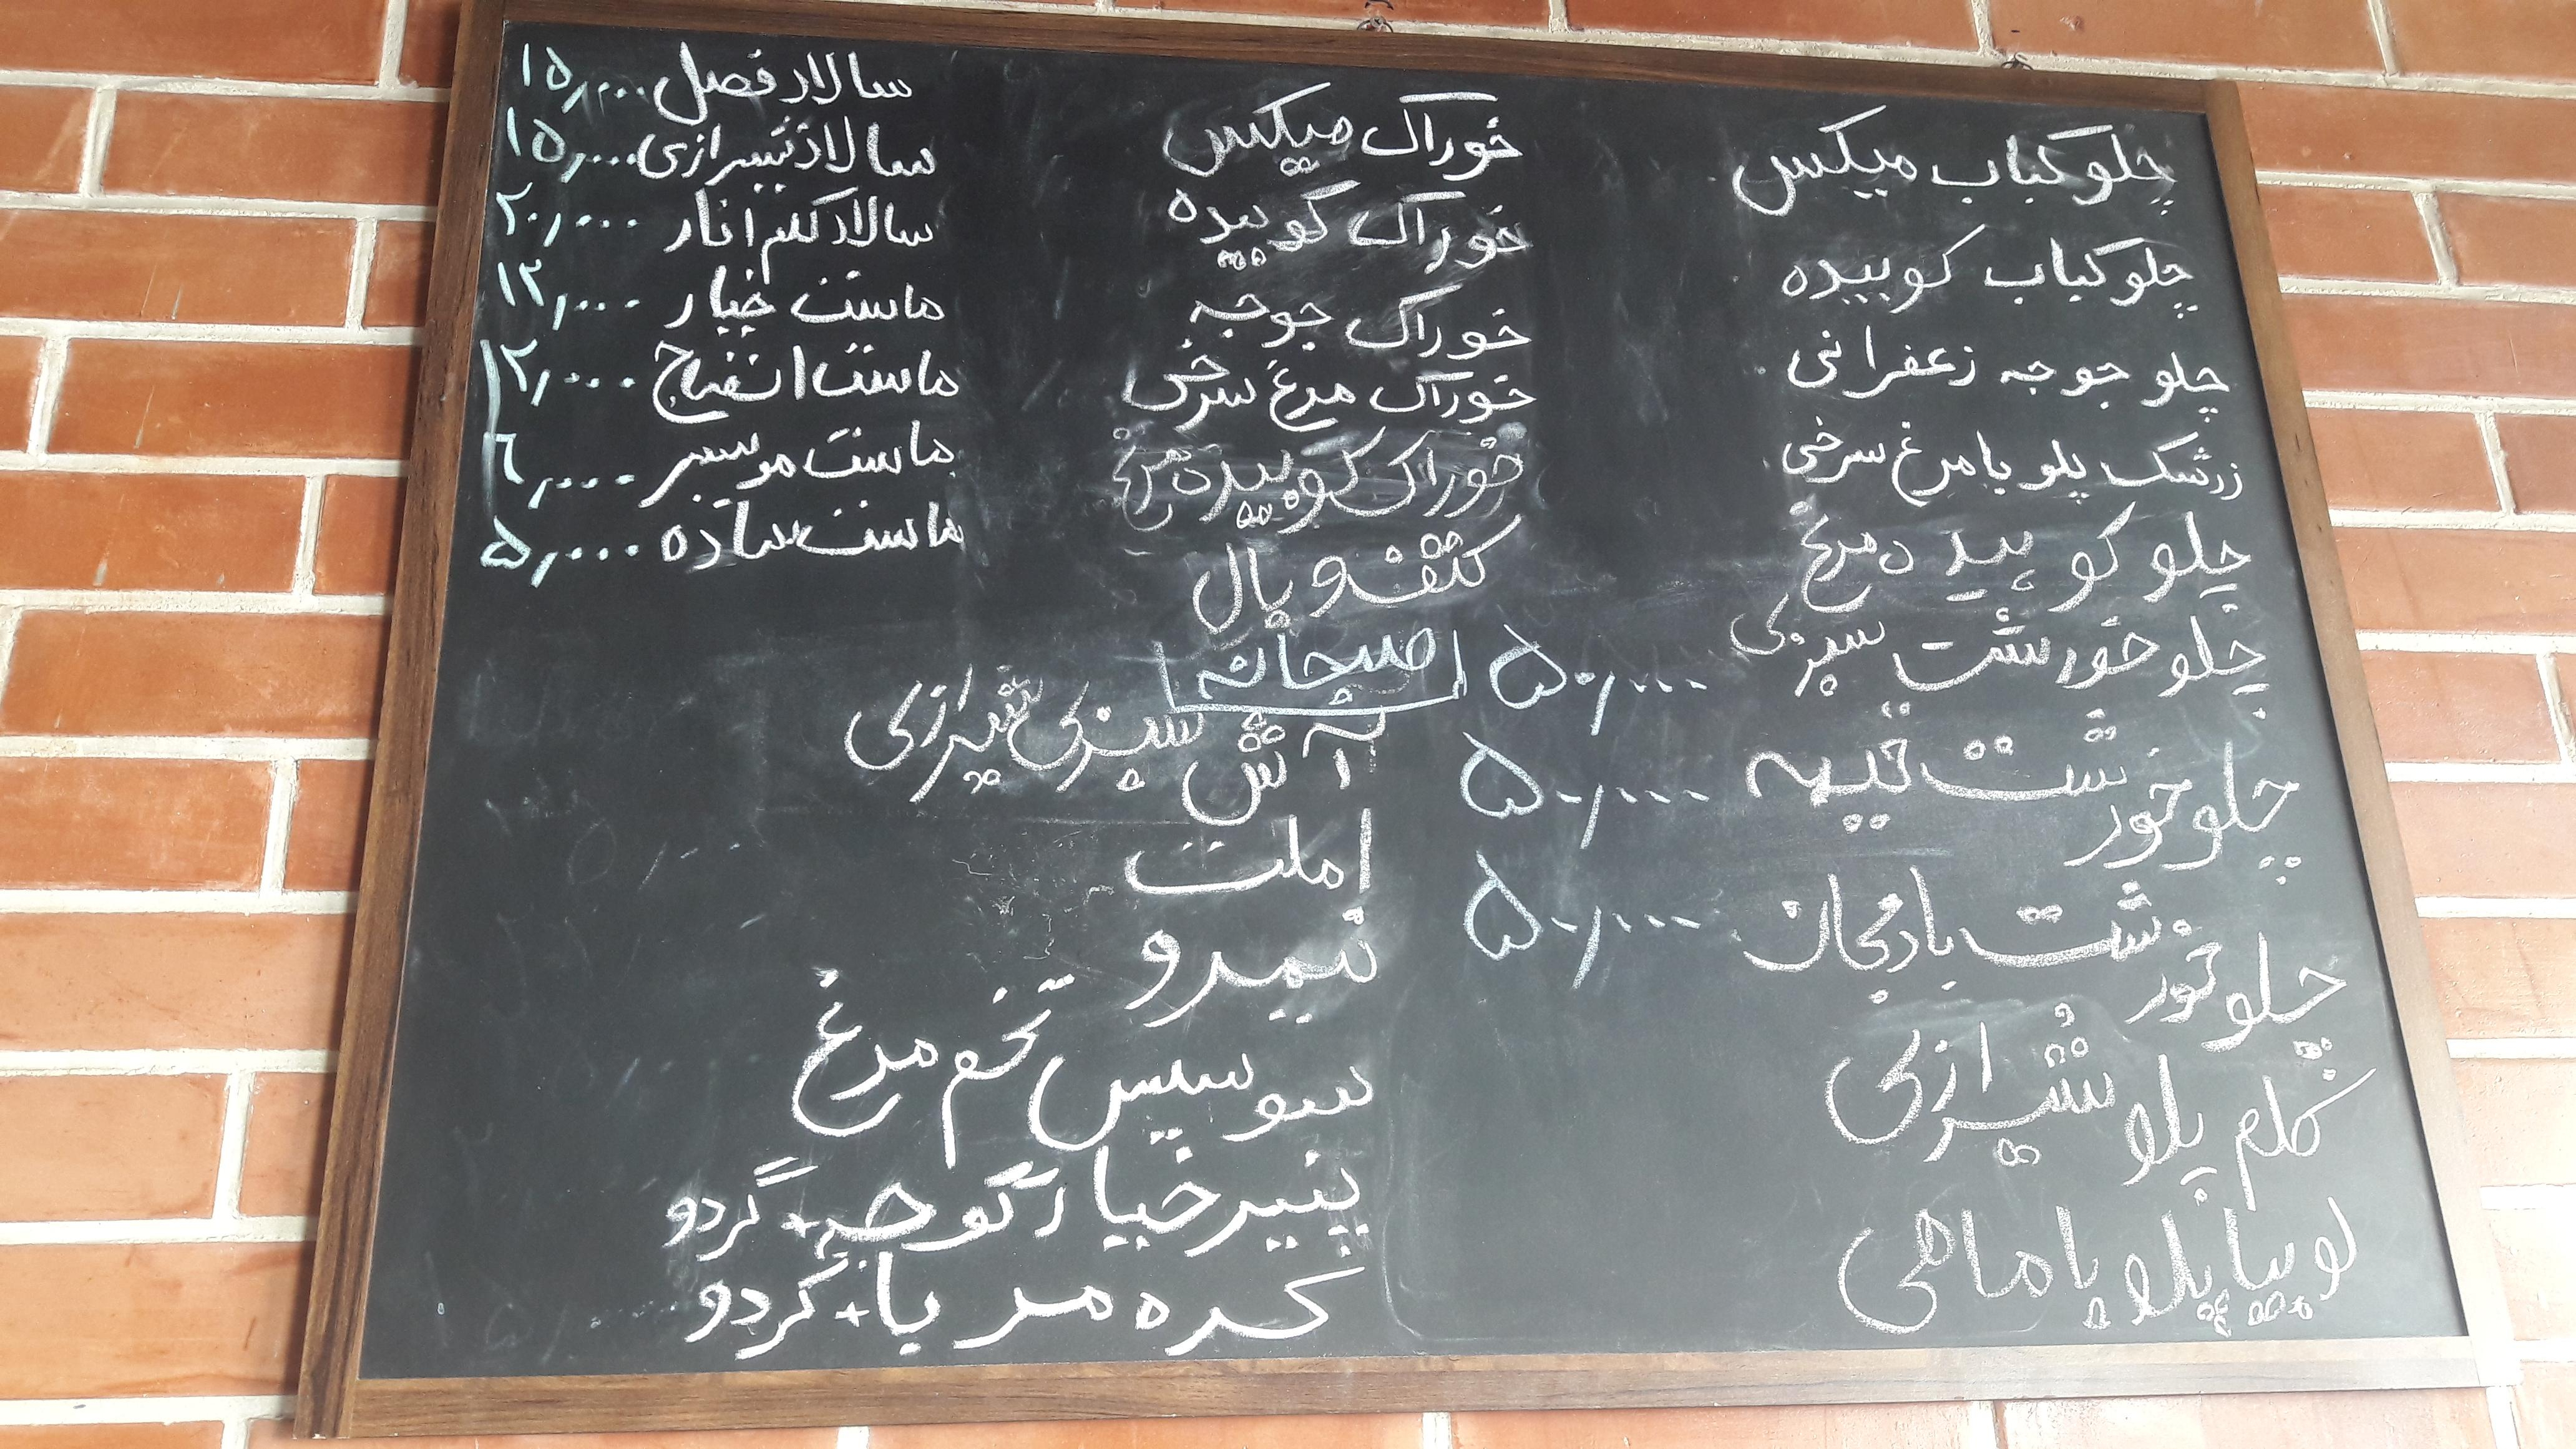 چلو کباب میکس
چلو کباب کوبیده
چلو جوجه زعفرانی
زرشک پلو با مرغ سرخی
چلو کوبیده مرغ
چلو خورشت سبزی ۵۰,۰۰۰
چلو خورشت قیمه ۵۰,۰۰۰
چلو خورشت بادمجان ۵۰,۰۰۰
کلم پلو شیرازی
لوبیا پلو با ماهی
خوراک میکس
خوراک کوبیده
خوراک جوجه
خوراک مرغ سرخی
خوراک کوبیده مرغ
کتف و بال
صبحانه
آش سبزی شیرازی
املت
نیمرو
سوسیس تخم مرغ
پنیر خیار گوجه + گردو
کره مربا + گردو
سالاد فصل ۱۵,۰۰۰
سالاد شیرازی ۱۵,۰۰۰
سالاد کلم انار ۲۰,۰۰۰
ماست خیار ۱۲,۰۰۰
ماست اسفناج ۱۲,۰۰۰
ماست موسیر ۶,۰۰۰
ماست ساده ۵,۰۰۰